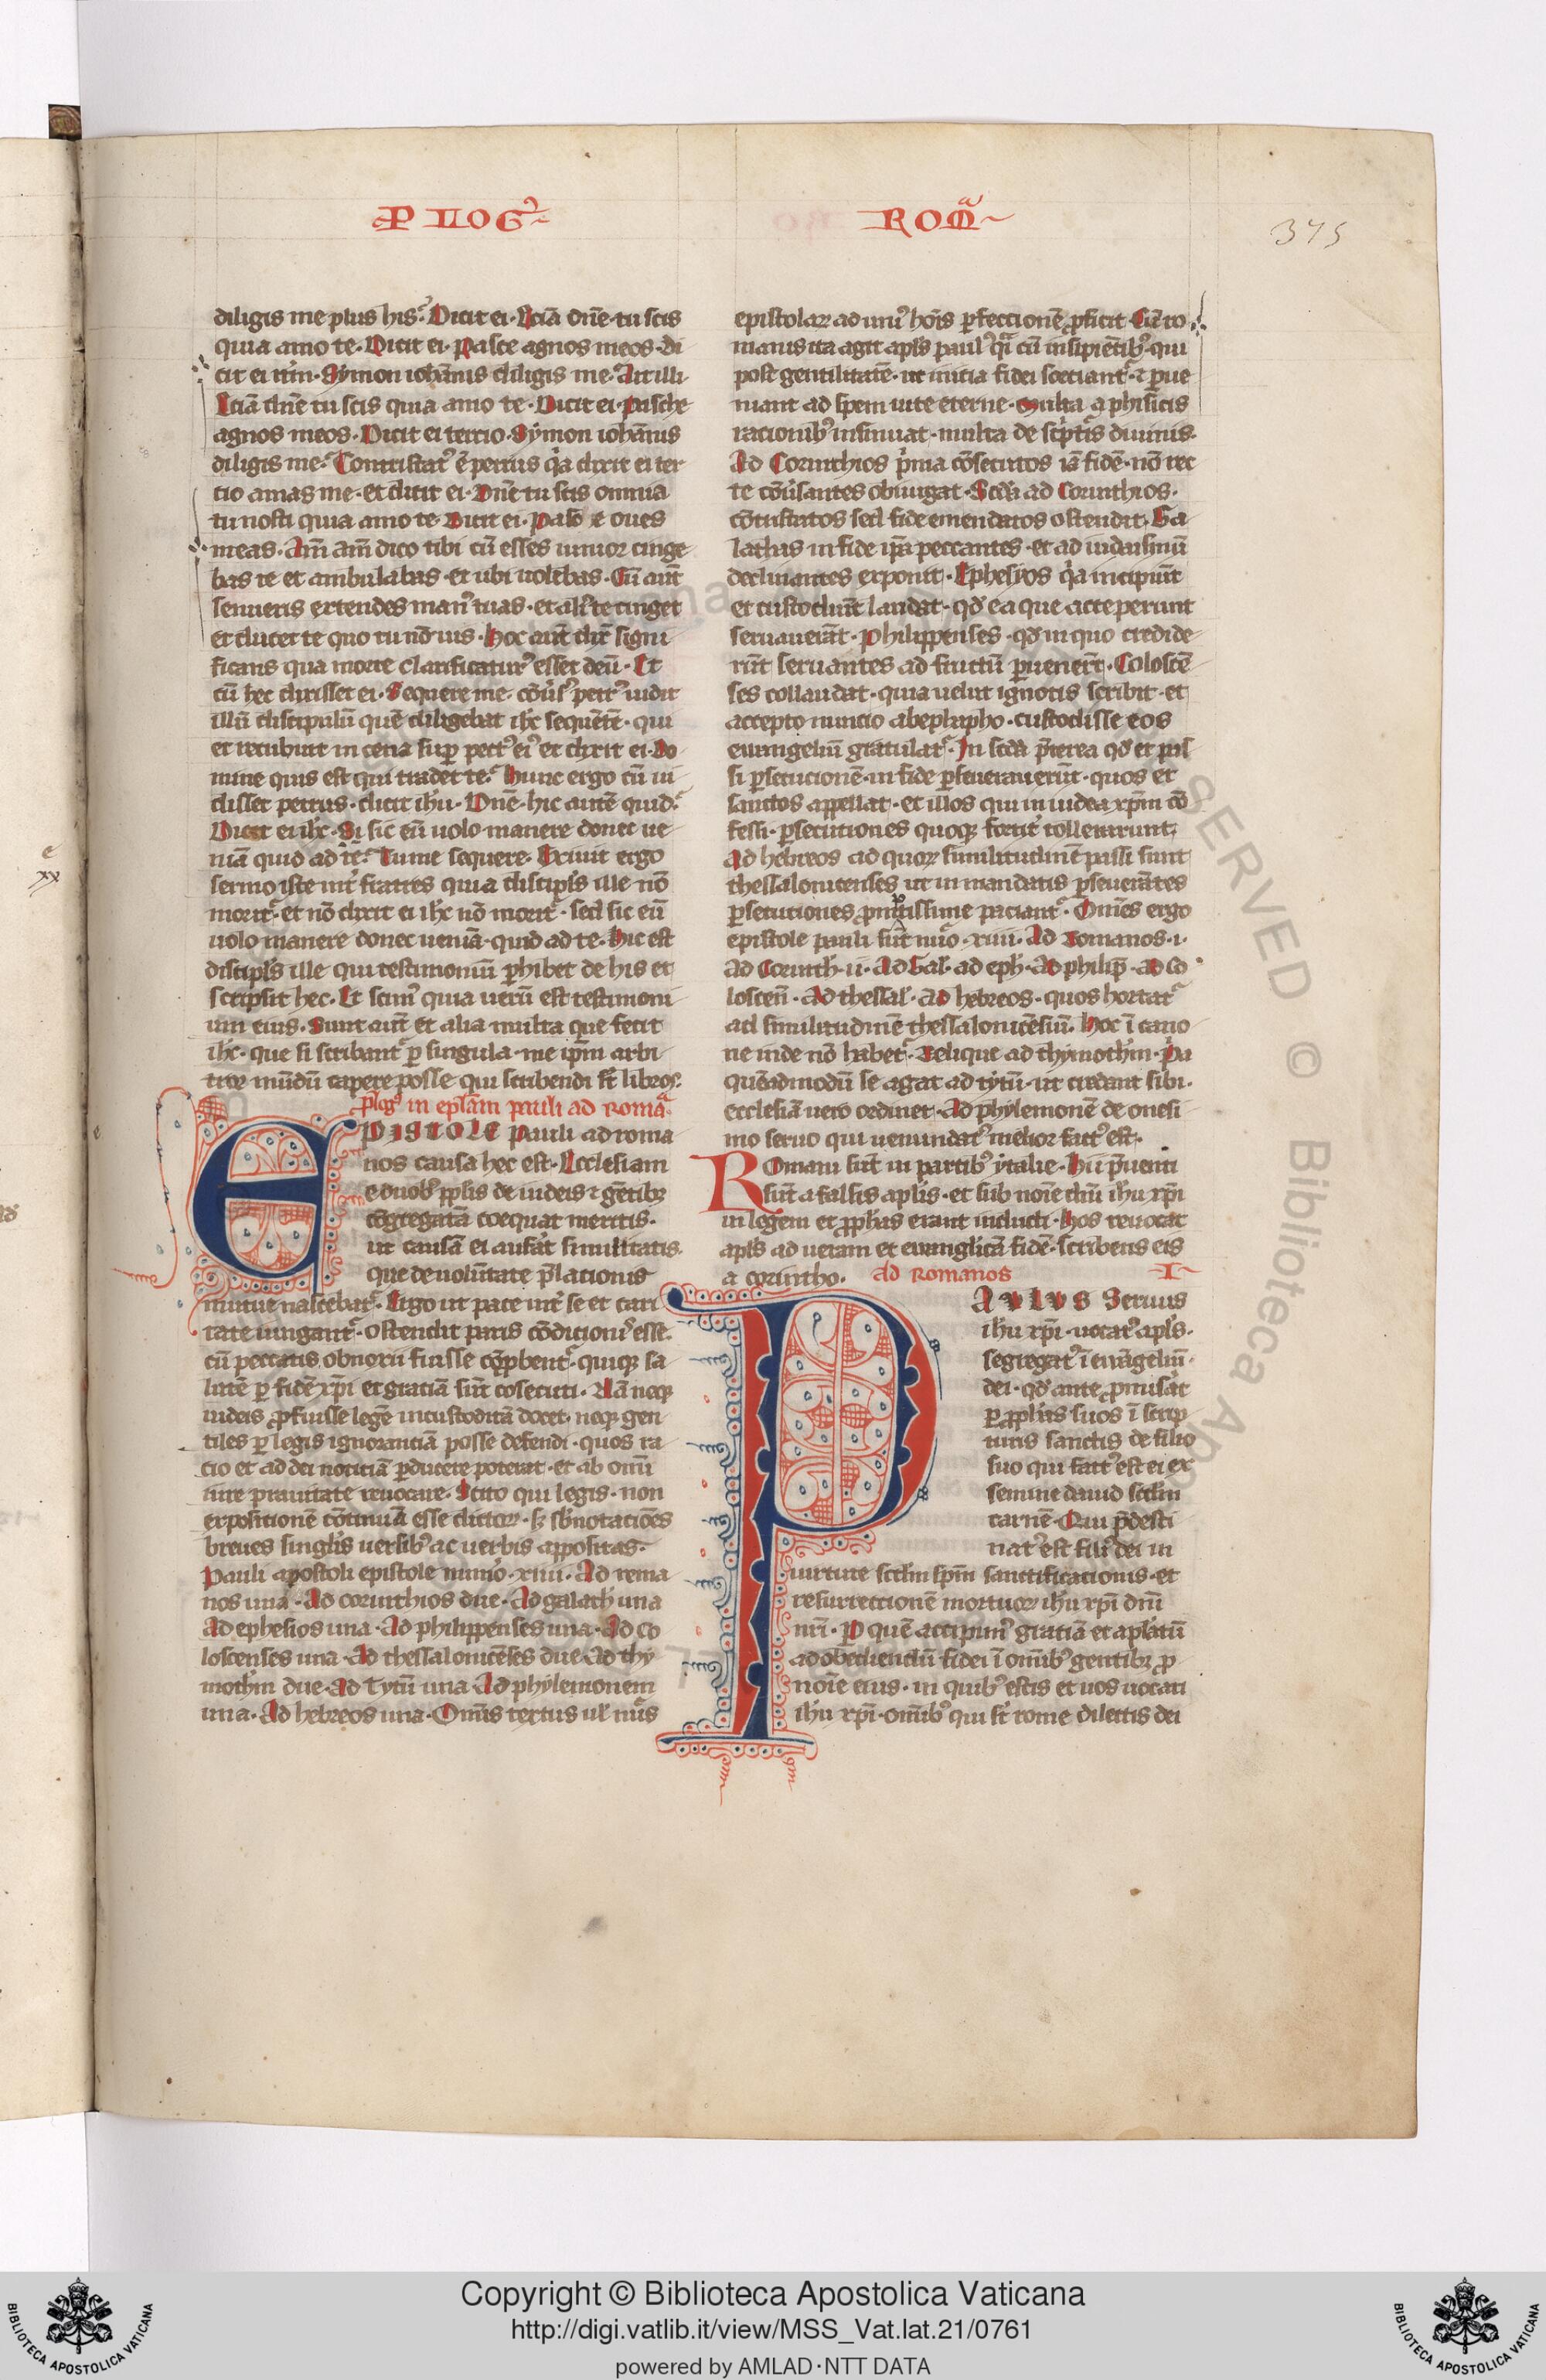 PLLOG᾽
ROMᵃ
375
diligis me plus his. Dicit ei. Eciā dn̄e tu scis
quia amo te. Dicit ei. Pasce agnos meos. Di
cit ei it̄m. Symon ioh̄annis diligis me. Ait illi
Eciā dn̄e tu scis quia amo te. Dicit ei. Pasche
agnos meos. Dicit ei tercio. Symon ioh̄annis
diligis me. Contristat᷑ ē petrus q̇a dixit ei ter
cio amas me. et dicit ei. Dn̄e tu scis omnia
tu nosti quia amo te. Dicit ei. Pasce oues
meas. Am̄ am̄ dico tibi cū esses iunior cinge
bas te et ambulabas. et ubi uolebas. Cū aūt
senueris extendes manꝰ tuas. et aliꝰ te cinget
et ducet te quo tu nō uis. Hoc aūt dix̄ signi
ficans qua morte clarificaturꝰ esset deū. Et
cū hec dixisset ei. Sequere me. cōuersꝰ petrꝰ uidit
illū discipulū quē diligebat ih̄c sequētē. qui
et recubuit in cena sup̱ pectꝰ eiꝰ et dixit ei. Do
mine quis est qui tradet te. Hunc ergo cū ui
disset petrus. dicit ih̄u. Dn̄e. hic autē quid.
Dicit ei ih̄c. Si sic eū uolo manere donec ue
niā quid ad te. Tu me sequere. Exiuit ergo
sermo iste int᷑ fratres quia discipl̄s ille nō
morit᷑. et nō dixit ei ih̄c nō morit᷑. sed sic eū
uolo manere donec ueniā. quid ad te. Hic est
discipl̄s ille qui testimoniū ꝑhibet de his et
scripsit hec. Et scimꝰ quia uerū est testimoni
um eius. Sunt aūt et alia multa que fecit
ih̄c. que si scribant᷑ ꝑ singula. ne ip̄m arbi
tror mūdū capere posse qui scribendi sт̄ libros.
p̄logꝰ in epl̄am pauli ad romᵃ.
EPISTOLE Pauli ad roma
nos causa hec est. Ecclesiam
e duobꝰ pp̄lis de iudeis ⁊ gētibꝫ
cōgregatā coequat meritis.
ut causā ei aufāt simultatis.
que de uolūtate p̄lationis
mutue nascebat᷑. Ergo ut pace int᷑ se et cari
tate iungant᷑. ostendit paris cōdicionis esse.
cū peccatis obnoxii fuisse cōprobent᷑. quiqꝫ sa
lutē ꝑ fidē xp̄i et gratiā sūt cōsecuti. Nā neqꝫ
iudeis ꝓfuisse legē incustoditā docet. neqꝫ gen
tiles ꝑ legis ignoranciā posse defendi. quos ra
cio et ad dei noticiā ꝑducere poterat. et ab omī
uite prauitate reuocare. Scito qui legis. non
expositionē cōtinuā esse dictorꝝ. sꝫ sb̄notaciōes
breues singlīs uersibꝰ ac uerbis appositas.
Pauli apostoli epistole numo᷑. xiiii. Ad roma
nos una. Ad corinthios due. Ad galath una
Ad ephesios una. Ad philippenses una. Ad co
loscenses una. Ad thessalonicēses due Ad thy
moth̄m due. Ad Tytū una. Ad phylemonem
una. Ad hebreos una. Omīs textus ul᷑ nūs
epistolarꝝ ad uniꝰ hōis ꝑfeccionē ꝓficit. Cū ro
manis ita agit apl̄s paulꝰ q̄i cū insipiētibꝰ. qui
post gentilitatē. ut inicia fidei sociant᷑. ⁊ ꝑue
niant ad spem uite eterne. Multa a phisicis
racionibꝰ insinuat. multa de sc̄ptis diuinis.
Ad Corinthios p̄ma cōsecutos iā fidē. nō rec
te cōūsantes obiurgat. Scd̄a ad Corinthios.
cōtristatos sed fide emendatos ostendit. Ga
lathas in fide ip̄a peccantes. et ad iudaismū
declinantes exponit. Ephesyos q̇a incipiūt
et custodiūt laudat. qd̄ ea que acceperunt
seruauerāt. Philippenses. qd̄ in quo credide
rūt seruantes ad fructū ꝑuener̄t. Coloscē
ses collaudat. quia uelut ignotis scribit. et
accepto nuncio ab ephapho. custodisse eos
euangeliū gratulat᷑. In scd̄a p̄terea qd̄ et pas
si ꝑsecucionē in fide ꝑseuerauerūt. quos et
sanctos appellat. et illos qui in iudea xp̄m cō
fessi. ꝑsecutiones quoqꝫ fortit᷑ tollerarunt.
Ad hebreos ad quorꝝ similitudinē passi sunt
thessalonicenses ut in mandatis ꝑseuerātes
ꝑsecutiones ꝓmptissime paciant᷑. Omēs ergo
epistole pauli sūt nūo. xiiii. Ad Romanos. i.
Ad Corinth. ii. Ad Gal. ad eph. Ad philip̄. Ad Co
loscen̄. Ad thessal. Ad hebreos. quos hortat᷑
ad similitudinē thessalonicēsiū. Hoc ī cano
ne inde nō habet᷑. Relique ad thymoth̄m. Pa
quēadmodū se agat ad tytū. ut credant sibi.
ecclesiā uero ordinet. Ad phylemonē de onesi
mo seruo qui uenundatꝰ melior factꝰ est.
ROmani sūt in partibꝰ ytalie. Hii p̄uenti
sūt a falsis aplīs. et sub noīe dn̄i ih̄u xp̄i
in legem et ꝓph̄as erant inducti. Hos reuocat
apl̄s ad ueram et euanglicā fidē. scribens eis
a corintho. ad Romanos I
PAULUS Seruus
ih̄u xp̄i. uocatꝰ apl̄s.
segregatꝰ ī euāgeliū.
dei. qd̄ ante ꝓmisāt
ꝑ ꝓph̄as suos ī scrip
turis sanctis de filio
suo qui factꝰ est ei ex
semine dauid scd̄m
carnē. Qui p̄desti
natꝰ est filiꝰ dei in
uirtute scd̄m sp̄m sanctificacionis. et
resurrectionē mortuorꝝ ih̄u xp̄i dn̄i
nr̄i. P̱ quē accipimꝰ gratiā et aplātū
ad obediendū fidei ī omībꝰ gentibꝫ ꝓ
noīe eius. in quibꝰ estis et uos uocati
ih̄u xp̄i. omībꝰ qui sт̄ rome dilectis dei
Copyright © Biblioteca Apostolica Vaticana
http://digi.vatlib.it/view/MSS_Vat.lat.21/0761
powered by AMLAD·NTT DATA
BIBLIOTECA APOSTOLICA VATICANA
BIBLIOTECA APOSTOLICA VATICANA